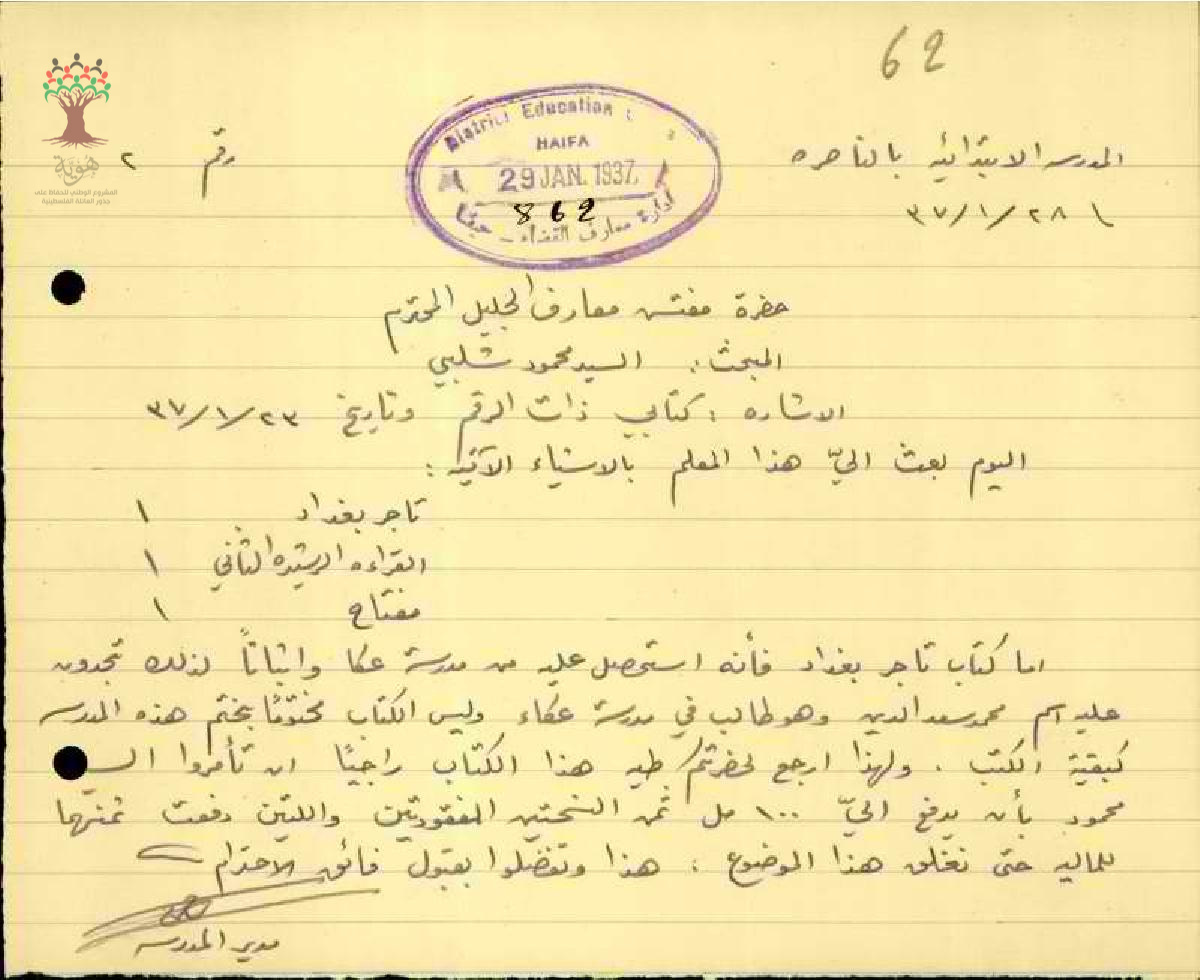 62
هوية
المشروع الوطني للحفاظ على
جذور العائلة الفلسطينية
District Education
HAIFA
29 JAN. 1937
862
ادارة معارف القضاء - حيفا
المدرسه الابتدائيه بالناصره رقم ٢
٢٨/١/٣٧
حضرة مفتش معارف الجليل المحترم
المبحث: السيد محمود شلبي
الاشاره: كتابي ذات الرقم وتاريخ ٢٣/١/٣٧
اليوم بعث اليّ هذا المعلم بالاشياء الآتيه:
تاجر بغداد ١
القراءه الرشيده الثاني ١
مفتاح ١
اما كتاب تاجر بغداد فأنه استحصل عليه من مدرسة عكا واثباتاً لذلك تجدون
عليه اسم محمد سعد الدين وهو طالب في مدرسة عكاء وليس الكتاب مختومًا بختم هذه المدرسه
كبقية الكتب. ولهذا ارجع لحضرتكم طيه هذا الكتاب راجيًا ان تأمروا
محمود بأن يدفع اليّ ١٠٠ مل ثمن النسختين المفقودتين واللتين دفعت ثمنهما
للماليه حتى نغلق هذا الموضوع. هذا وتفضلوا بقبول فائق الاحترام
مدير المدرسه